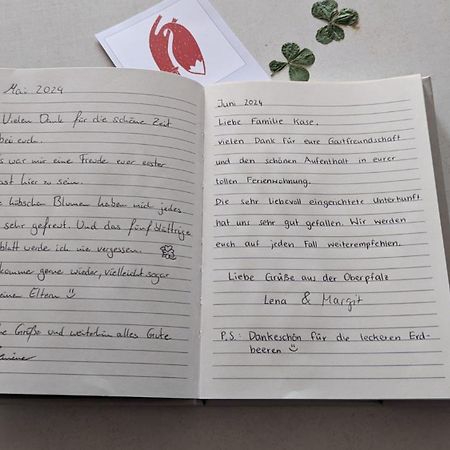 Mai 2024
Vielen Dank für die schöne Zeit
bei euch.
s war mir eine Freude euer erster
ast hier zu sein.
e hübschen Blumen haben mich jedes
sehr gefreut. Und das fünfblättrige
blatt werde ich nie vergessen.
komme gerne wieder, vielleicht sogar
einen Eltern
e Grüße und weiterhin alles Gute
Juni 2024
Liebe Familie Kase,
vielen Dank für eure Gastfreundschaft
und den schönen Aufenthalt in eurer
tollen Ferienwohnung.
Die sehr liebevoll eingerichtete Unterkunft
hat uns sehr gut gefallen. Wir werden
euch auf jeden Fall weiterempfehlen.
Liebe Grüße aus der Oberpfalz
Lena & Margit
P.S.: Dankeschön für die leckeren Erd-
beeren